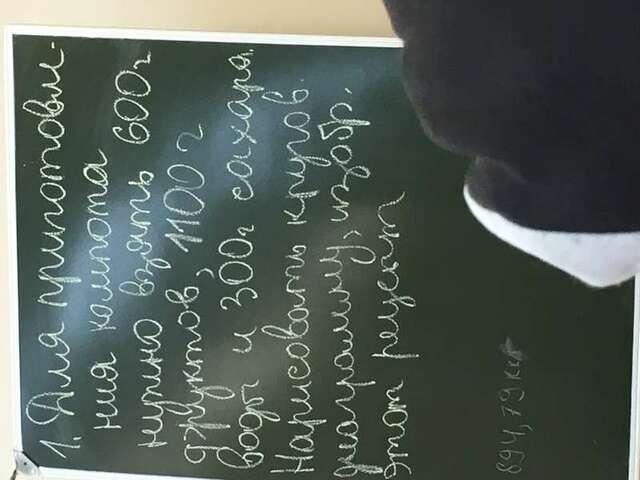 1. Для приготовле-
ния компота
нужно взять 600г
фруктов, 1100 г
воды и 300г сахара.
Нарисовать кругов.
диаграмму, изобр.
этот рецепт
894,79 кк